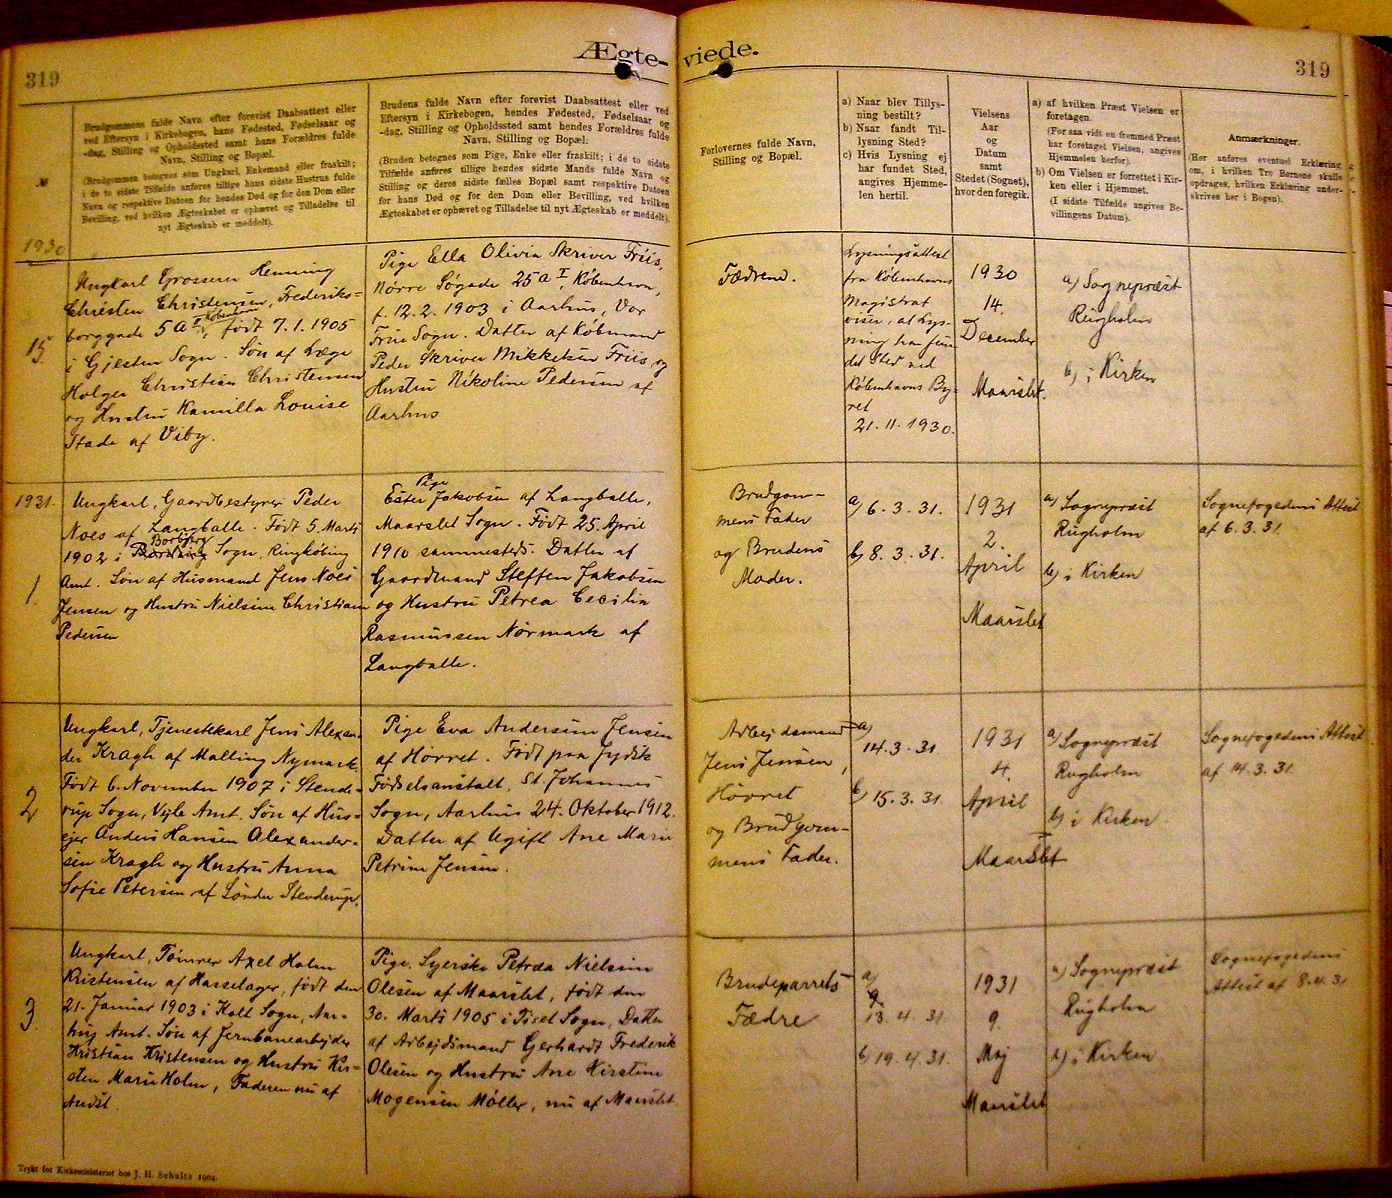 319
Ægte-
viede.
319
№
Brudgommens fulde Navn efter forevist Daabsattest eller
ved Eftersyn i Kirkebogen, hans Fødested, Fødselsaar og
-dag, Stilling og Opholdssted samt hans Forældres fulde
Navn, Stilling og Bopæl.
(Brudgommen betegnes som Ungkarl, Enkemand eller fraskilt;
i de to sidste Tilfælde anføres tillige hans sidste Hustrus fulde
Navn og respektive Datoen for hendes Død og for den Dom eller
Bevilling, ved hvilken Ægteskabet er ophævet og Tilladelse til
nyt Ægteskab er meddelt).
Brudens fulde Navn efter forevist Daabsattest eller ved
Eftersyn i Kirkebogen, hendes Fødested, Fødselsaar og
-dag, Stilling og Opholdssted samt hendes Forældres fulde
Navn, Stilling og Bopæl.
(Bruden betegnes som Pige, Enke eller fraskilt; i de to sidste
Tilfælde anføres tillige hendes sidste Mands fulde Navn og
Stilling og deres sidste fælles Bopæl samt respektive Datoen
for hans Død og for den Dom eller Bevilling, ved hvilken
Ægteskabet er ophævet og Tilladelse til nyt Ægteskab er meddelt).
Forlovernes fulde Navn,
Stilling og Bopæl.
a) Naar blev Tillys-
ning bestilt?
b) Naar fandt Til-
lysning Sted?
c) Hvis Lysning ej
har fundet Sted,
angives Hjemme-
len hertil.
Vielsens
Aar
og
Datum
samt
Stedet (Sognet),
hvor den foregik.
a) af hvilken Præst Vielsen er
foretagen.
(For saa vidt en fremmed Præst
har foretaget Vielsen, angives
Hjemmelen herfor).
b) Om Vielsen er forrettet i Kir-
ken eller i Hjemmet.
(I sidste Tilfælde angives Be-
villingens Datum).
Anmærkninger.
(Her anføres eventuel Erklæring
om, i hvilken Tro Børnene skulle
opdrages, hvilken Erklæring under-
skrives her i Bogen).
1930
15.
Ungkarl Grosserer Henning
Christen Christensen, Frederiks-
borggade 5 A I København
V, født 7.1.1905
i Gjesten Sogn. Søn af Læge
Holger Christian Christensen
og Hustru Kamilla Louise
Stade af Viby.
Pige Ella Olivia Skriver Friis,
Nørre Søgade 25 A I, København,
f. 12.2.1903 i Aarhus, Vor
Frue Sogn. Datter af Købmand
Peder Skriver Mikkelsen Friis og
Hustru Nikoline Pedersen af
Aarhus
Fædrene.
Lysningsattest
fra Københavns
Magistrat
viser, at Lys-
ning har fun
det Sted ved
Københavns By-
ret
21.11.1930.
1930
14.
December
Maarslet.
a) Sognepræst
Rugholm
b) i Kirken
1931.
1.
Ungkarl, Gaardbestyrer Peder
Noes af Langballe. Født 5. Marts
Borbjerg
1902 i Sogn, Ringkøbing
Amt. Søn af Husmand Jens Noes
Jensen og Hustru Nielsine Christiane
Pedersen
Pige
Ester Jakobsen af Langballe,
Maarslet Sogn. Født 25. April
1910 sammesteds. Datter af
Gaardmand Steffen Jakobsen
og Hustru Petrea Cecilia
Rasmussen Nørmark af
Langballe.
Brudgom-
mens Fader
og Brudens
Moder.
a) 6.3.31.
b) 8.3.31.
1931
2.
April
Maarslet
a) Sognepræst
Rugholm
b) i Kirken
Sognefogedens Attest
af 6.3.31.
2
Ungkarl, Tjenestekarl Jens Alexan-
der Kragh af Malling Nymark.
Født 6. November 1907 i Stende-
rup Sogn, Vejle Amt. Søn af Hus-
ejer Anders Hansen Alexander-
sen Kragh og Hustru Anna
Sofie Petersen af Sønder Stenderup.
Pige Eva Andersen Jensen
af Hørret. Født paa Jydsk
Fødselsanstalt, St. Johannes
Sogn, Aarhus 24. Oktober 1912.
Datter af Ugift Ane Marie
Petrine Jensen.
Arbejdsmand
Jens Jensen,
Hørret
og Brudgom-
mens Fader.
a)
14.3.31.
b) 15.3.31.
1931
4.
April
Maarslet
a) Sognepræst
Rugholm
b) i Kirken.
Sognefogedens Attest
af 14.3.31.
3.
Ungkarl, Tømrer Axel Holm
Kristensen af Hasselager, født den
21. Januar 1903 i Kolt Sogn, Aar-
hus Amt. Søn af Jernbanearbejder
Kristian Kristensen og Hustru Kir-
sten Marie Holm, Faderen nu af
Andst.
Pige, Syerske Petræa Nielsine
Olesen af Maarslet, født den
30. Marts 1905 i Tiset Sogn, Datter
af Arbejdsmand Gerhardt Frederik
Olesen og Hustru Ane Kirstine
Mogensen Møller, nu af Maarslet.
Brudeparrets
Fædre
a)
13.4.31.
b) 19.4.31.
1931
9.
Maj
Maarslet
a) Sognepræst
Rugholm
b) i Kirken
Sognefogedens
Attest af 8.4.31
Trykt for Kirkeministeriet hos J. H. Schultz 1904.